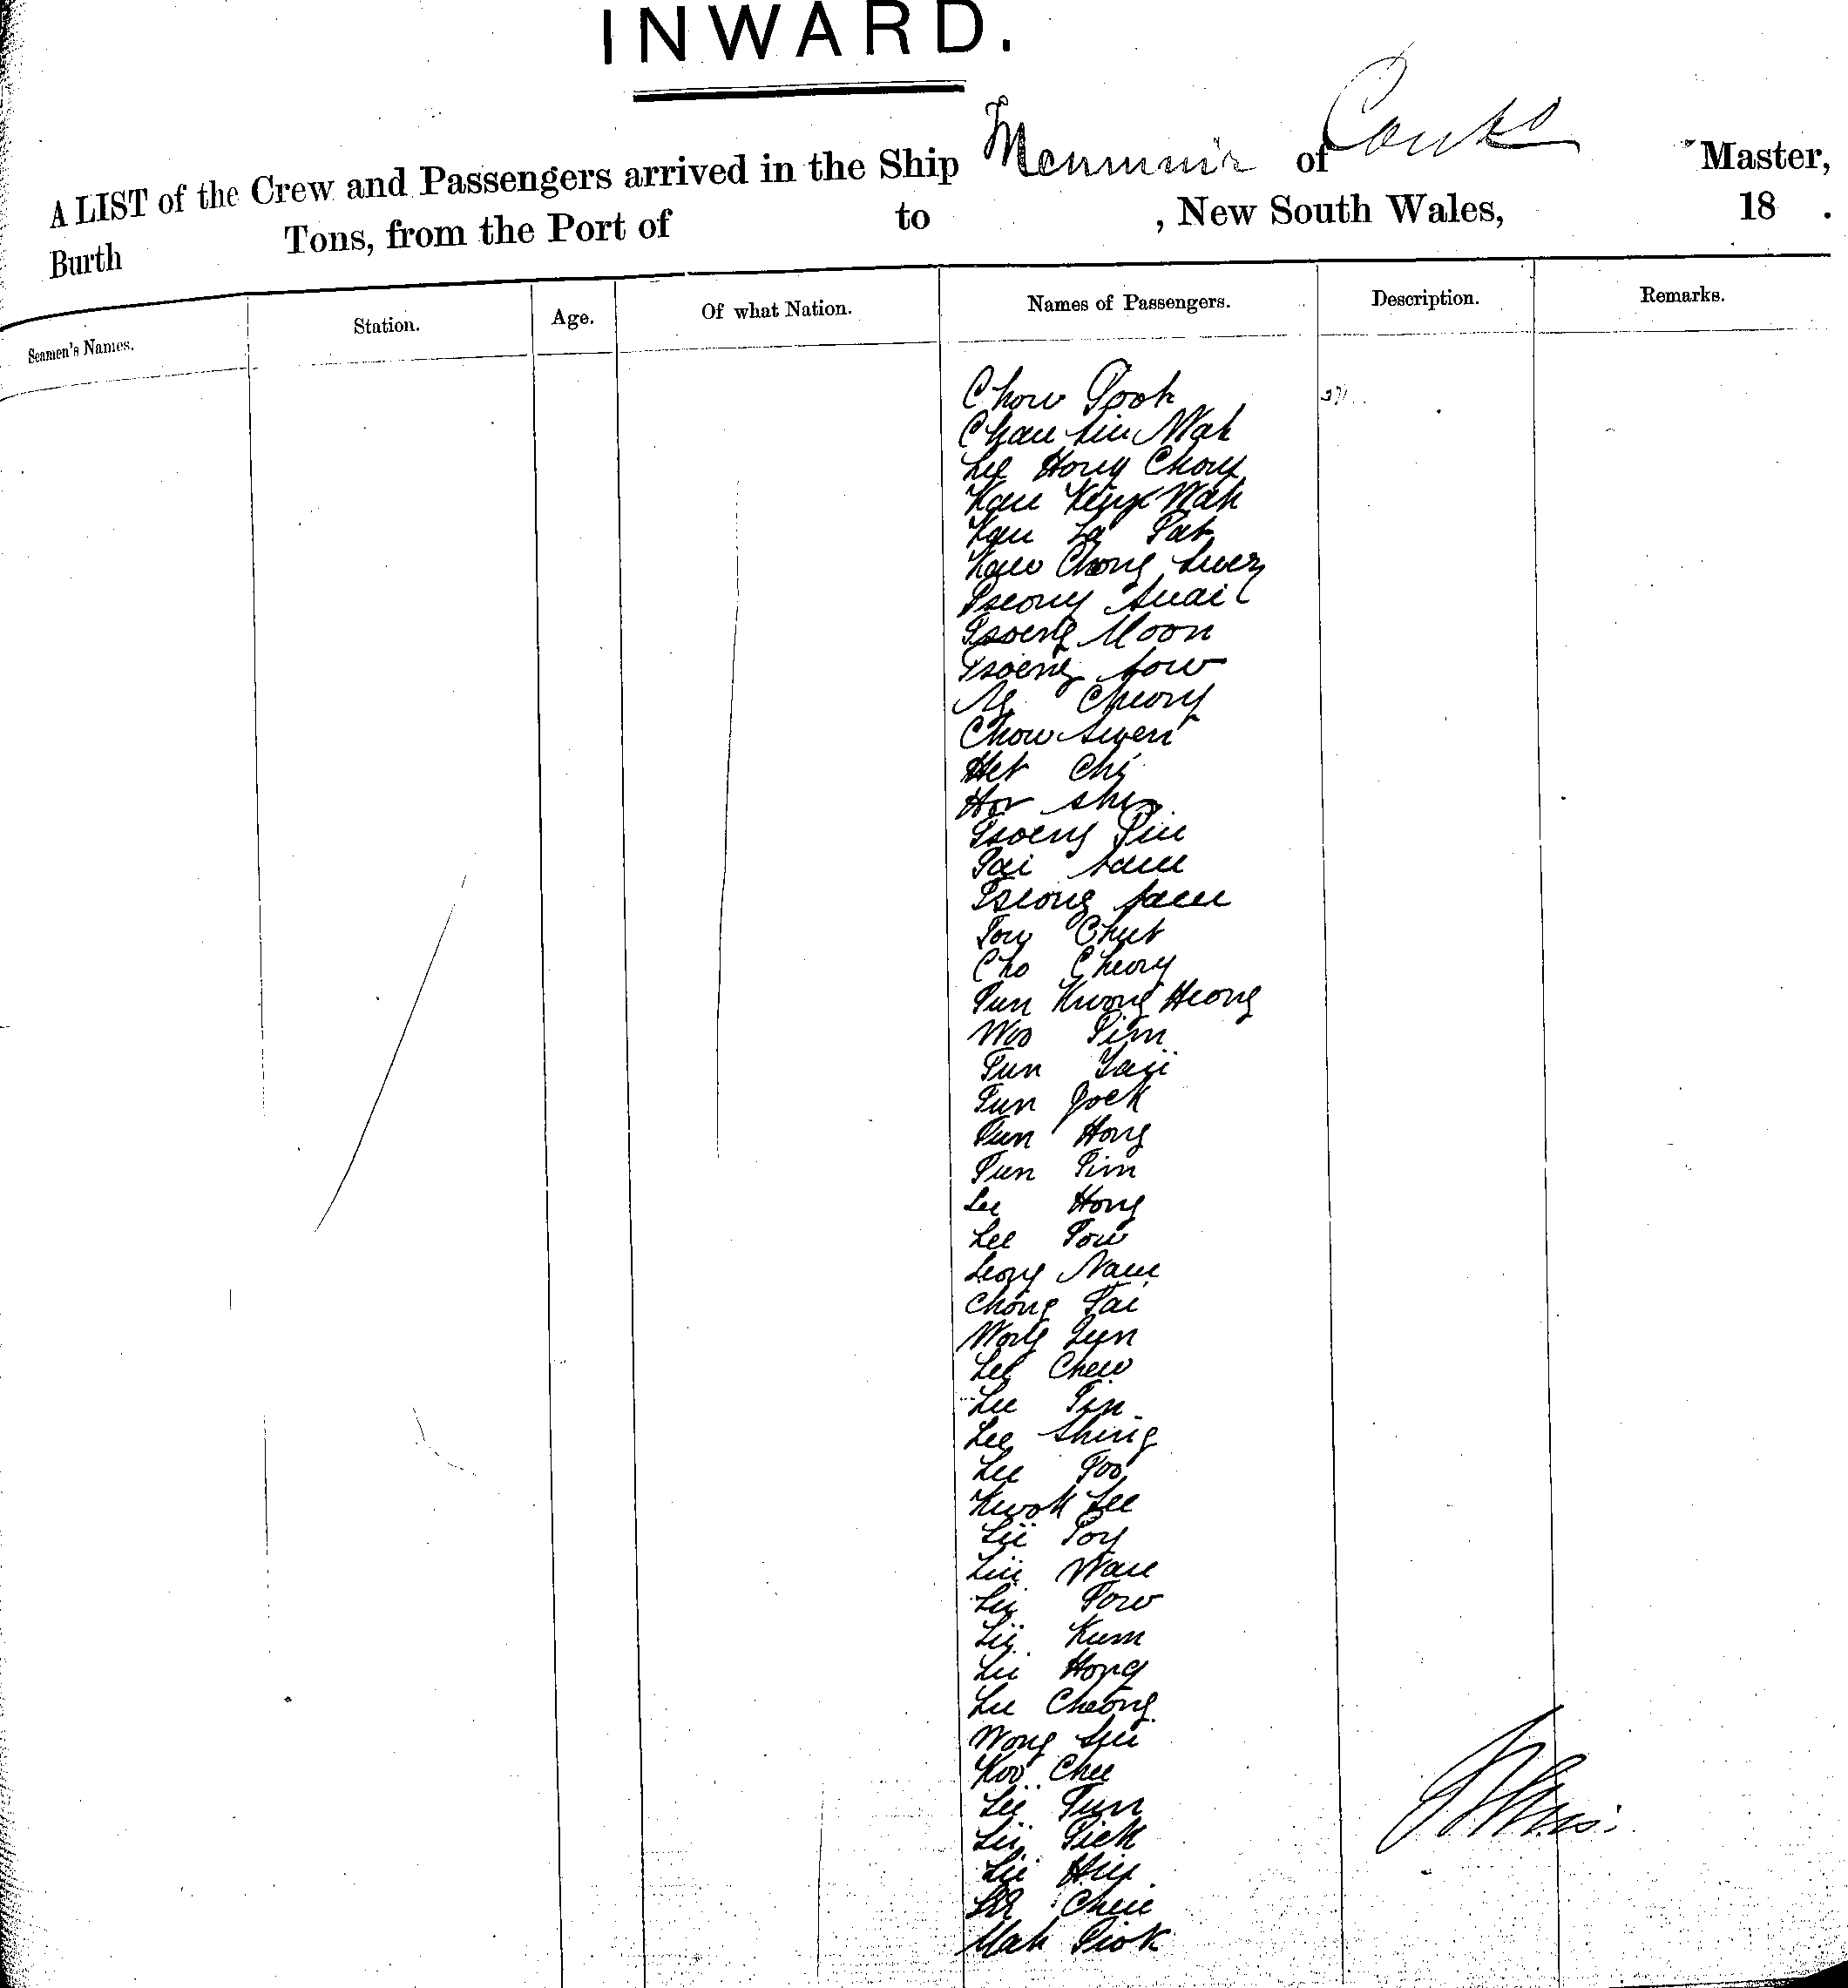 INWARD.
A LIST of the Crew and Passengers arrived in the Ship Menmuir of Master,
Burth Tons, from the Port of to , New South Wales, 18 .
Seamen's Names. Station. Age. Of what Nation. Names of Passengers. Description. Remarks.
Chow Took
Chau Liu Wah
Lee Hong Chong
Kau King Wah
Kau La Pat
Kau Chong
Tseong
Tsoeng Moon
Tsoeng Sow
Cheong
Chow
Het Chi
Hor
Tsoeng Tiu
Tai Sam
Tseong Sam
Toy Chut
Cho Cheong
Tun Kwong Heong
Woo Tim
Tun
Tun Gock
Tun Hong
Tun Tim
Lee Hong
Lee Tow
Leong Nam
Chong Tai
Wong Lun
Lee Chew
Lee Tin
Lee Shing
Lee Too
Kwok Lee
Lee Toy
Lee Wau
Lee Tow
Lee Kum
Lee Hong
Lee Cheong
Wong
Koo Chee
Lee Tun
Lee Tick
Lee Hip
Lee Chee
Mah Tiok